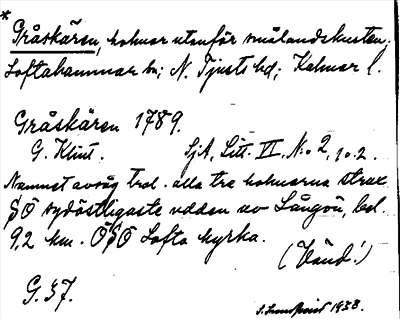 * Gråskären, holmar utanför smålandskusten.
Loftahammar sn; N. Tjusts hd; Kalmar l.
Gråskären 1789.
G. Klint. SjA, Litt. VI, N:o 2, 1 o. 2.
Namnet avsåg trol. alla tre holmarna strax
SÖ sydöstligaste udden av Långön, bel.
9,2 km. ÖSÖ Lofta kyrka.
(Vänd!)
G. 37. 1938.